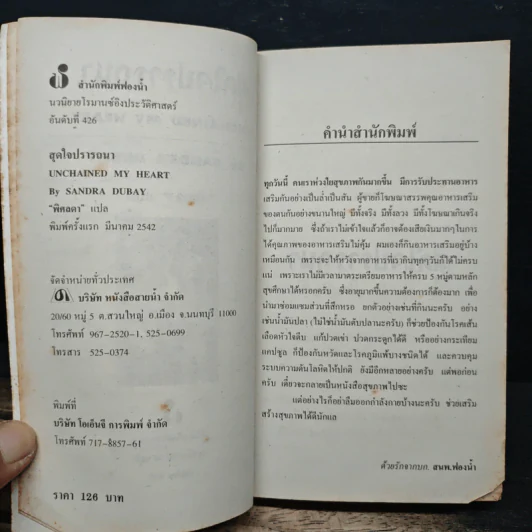 สำนักพิมพ์ฟองน้ำ
นวนิยายโรมานซ์อิงประวัติศาสตร์
อันดับที่ 426
สุดใจปรารถนา
UNCHAINED MY HEART
By SANDRA DUBAY
"พิศลดา" แปล
พิมพ์ครั้งแรก มีนาคม 2542
จัดจำหน่ายทั่วประเทศ
บริษัท หนังสือสายน้ำ จำกัด
20/60 หมู่ 5 ต.สวนใหญ่ อ.เมือง จ.นนทบุรี 11000
โทรศัพท์ 967-2520-1, 525-0699
โทรสาร 525-0374
พิมพ์ที่
บริษัท โอเอ็นจี การพิมพ์ จำกัด
โทรศัพท์ 717-8857-61
ราคา 126 บาท
คำนำสำนักพิมพ์
ทุกวันนี้ คนเราห่วงใยสุขภาพกันมากขึ้น มีการรับประทานอาหาร
เสริมกันอย่างเป็นล่ำเป็นสัน ผู้ขายก็โฆษณาสรรพคุณอาหารเสริม
ของตนกันอย่างขนานใหญ่ มีทั้งจริง มีทั้งลวง มีทั้งโฆษณาเกินจริง
ไปก็มากมาย ซึ่งถ้าเราไม่เข้าใจแล้วก็อาจต้องเสียเงินมากๆในการ
ได้คุณภาพของอาหารเสริมไม่คุ้ม ผมเองก็กินอาหารเสริมอยู่บ้าง
เหมือนกัน เพราะจะให้หวังจากอาหารที่เรากินทุกๆวันก็ได้ไม่ครบ
แน่ เพราะเราไม่มีเวลามาตระเตรียมอาหารให้ครบ 5 หมู่ตามหลัก
สุขศึกษาได้หรอกครับ ซึ่งอายุมากขึ้นความต้องการก็ต้องมาก เพื่อ
นำมาซ่อมแซมส่วนที่สึกหรอ ยกตัวอย่างเช่นที่กินนะครับ อย่าง
เช่นน้ำมันปลา (ไม่ใช่น้ำมันตับปลานะครับ) ก็ช่วยป้องกันโรคเส้น
เลือดหัวใจตีบ แก้ปวดเข่า ปวดกระดูกได้ดี หรืออย่างกระเทียม
แคปซูล ก็ป้องกันหวัดและโรคภูมิแพ้บางชนิดได้ และควบคุม
ระบบความดันโลหิตให้ปกติ ยังมีอีกหลายอย่างครับ แต่พอก่อน
ครับ เดี๋ยวจะกลายเป็นหนังสือสุขภาพไปซะ
แต่อย่างไรก็อย่าลืมออกกำลังกายบ้างนะครับ ช่วยเสริม
สร้างสุขภาพได้ดีนักแล
ด้วยรักจากบก. สนพ.ฟองน้ำ